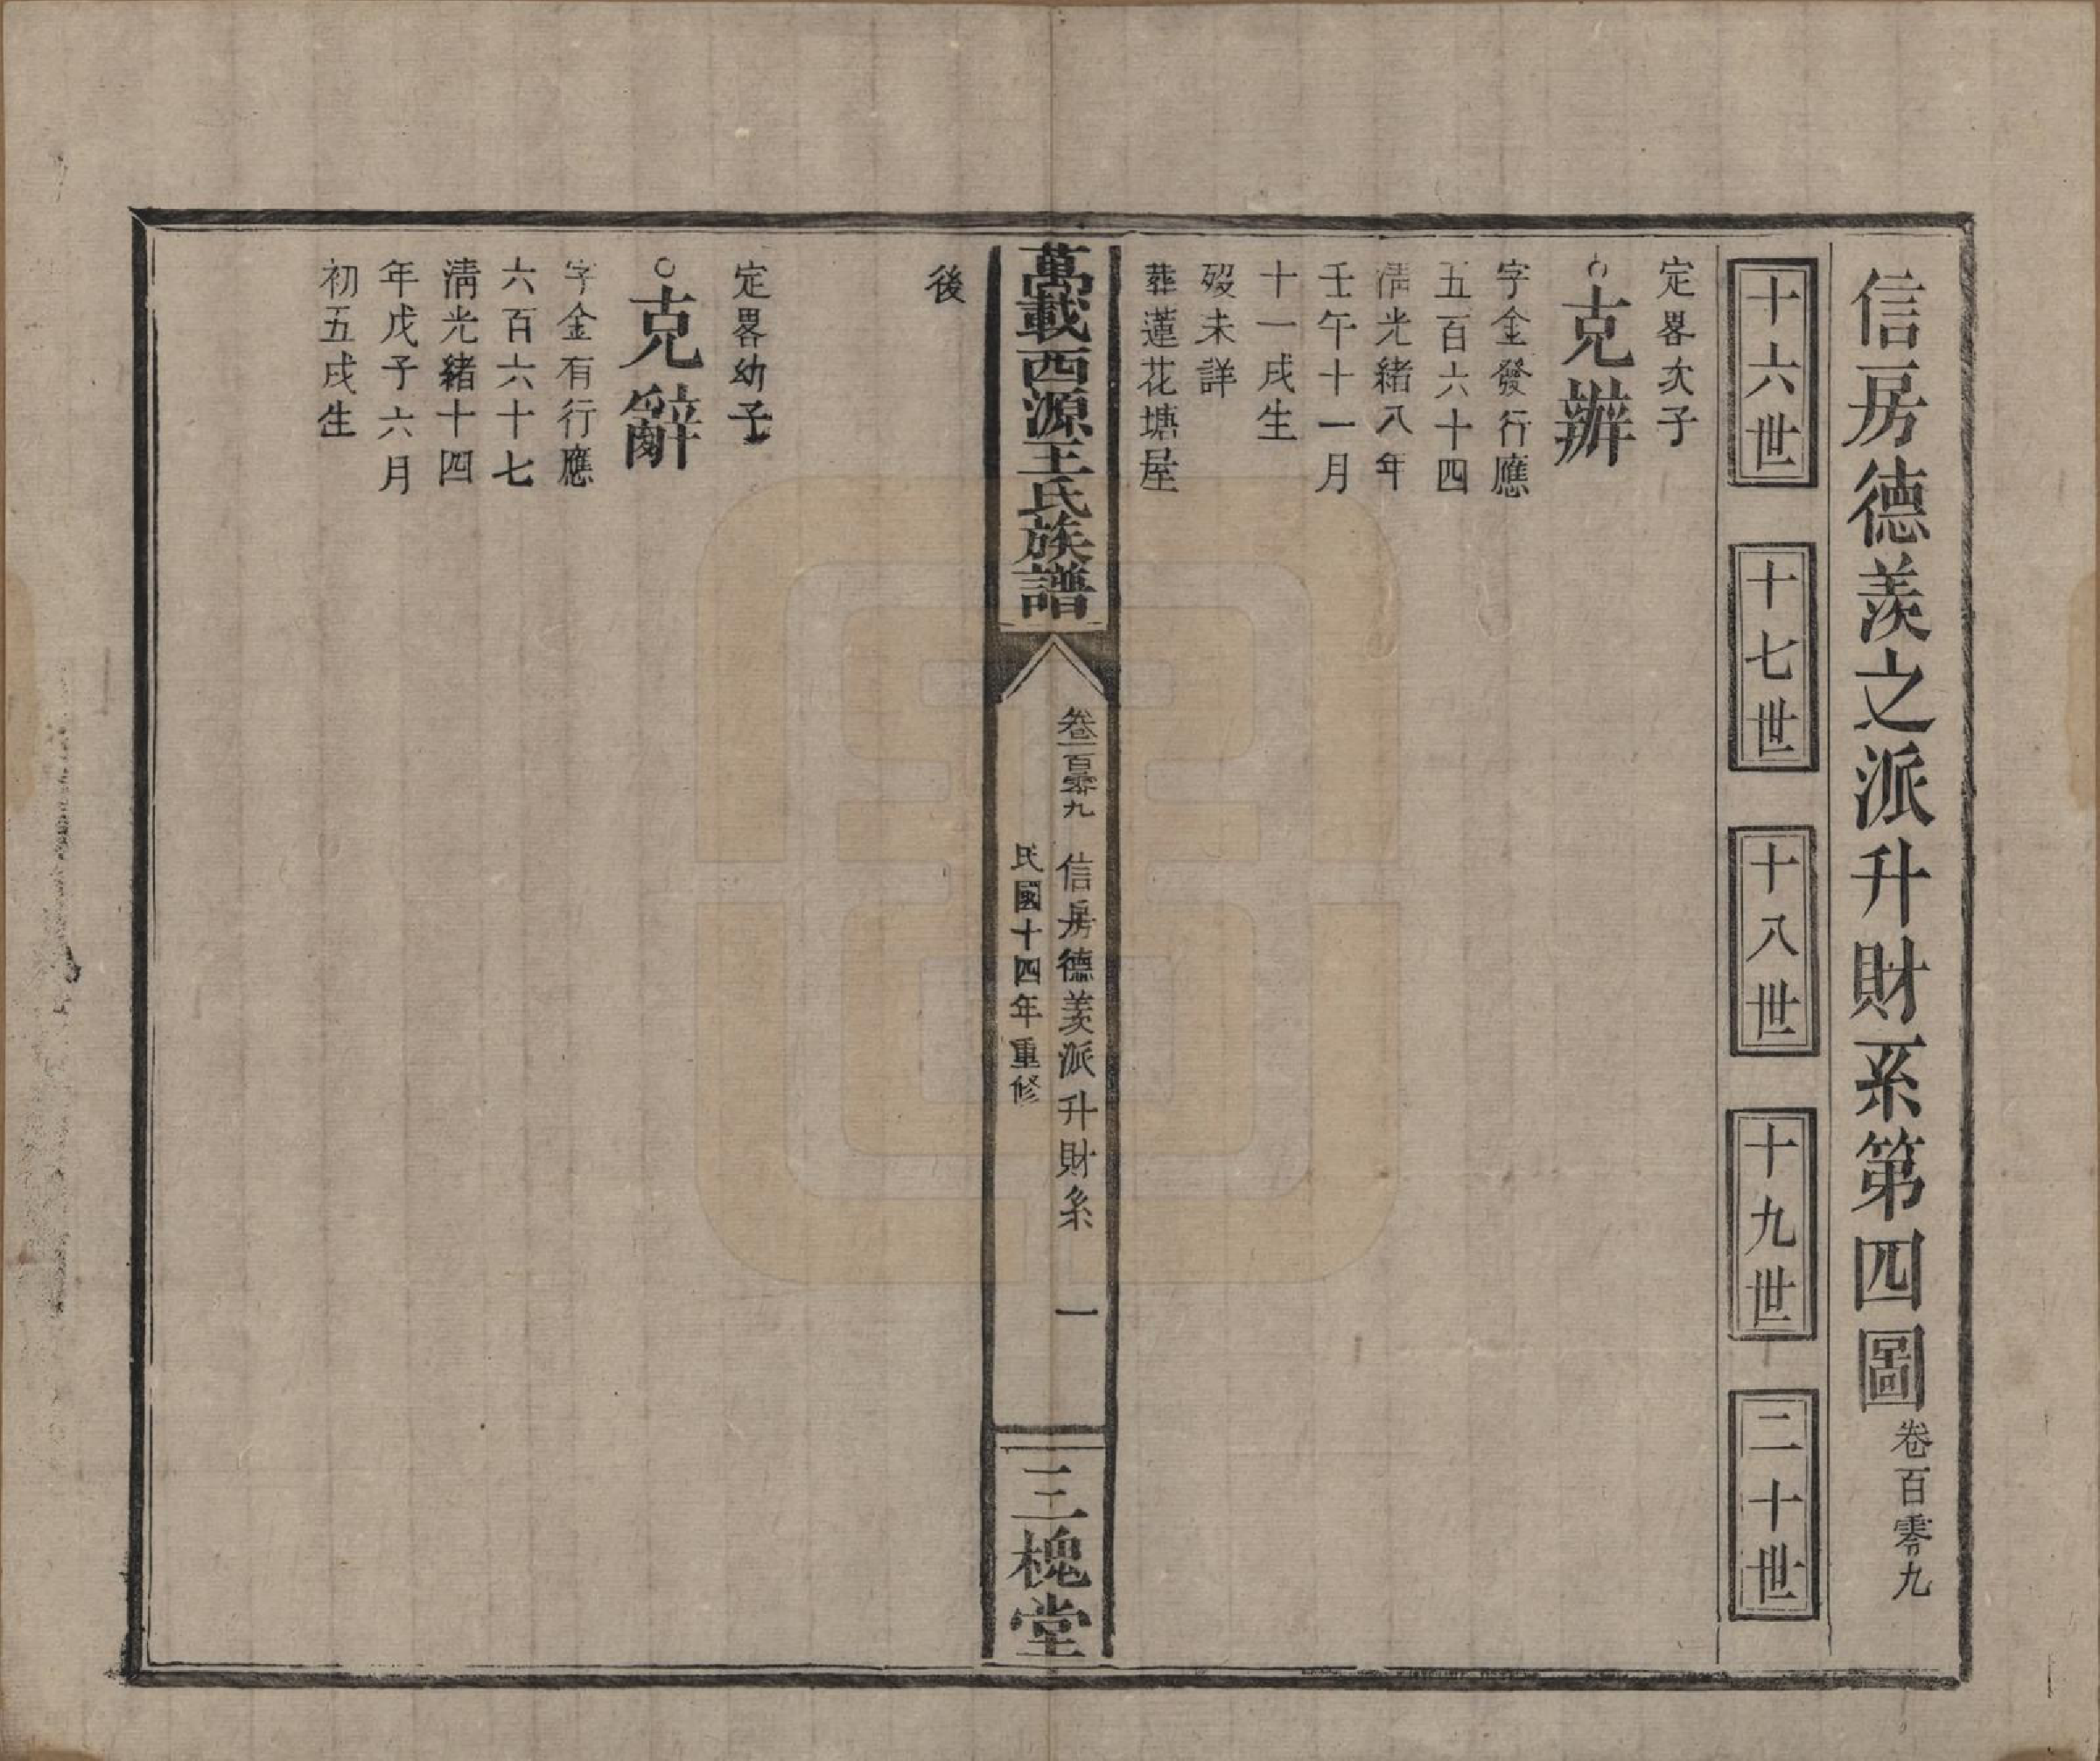 信房德羡之派升財系第四圖卷百零九
十六世
十七世
十八世
十九世
二十世
定畧次子
○克辦
字金發行應
五百六十四
清光緒八年
壬午十一月
十一戌生
歿未詳
葬蓮花塘屋
萬載西源王氏族譜
卷一百零九 信房德羡派升財系 一
民國十四年重修
三槐堂
後
定畧幼子
○克辭
字金有行應
六百六十七
清光緒十四
年戊子六月
初五戌生